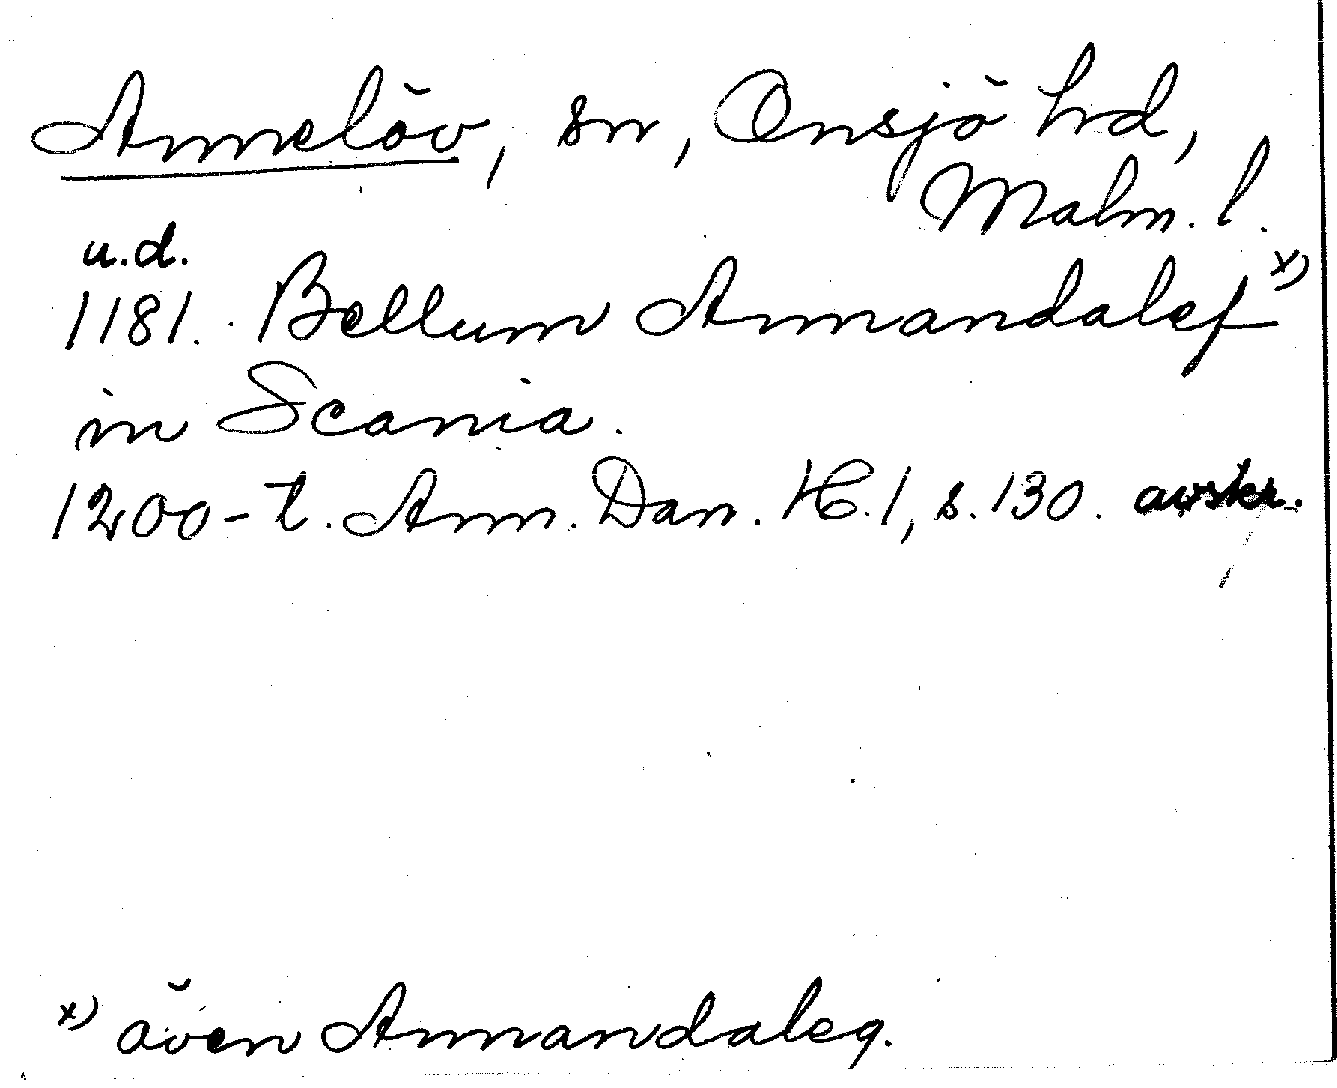 Annelöv, sn, Onsjö hd,
Malm. l.
u.d.
1181. Bellum Annandalef x)
in Scania.
1200-t. Ann. Dan. H. 1, s. 130. avskr.
x) även Annandaleq.